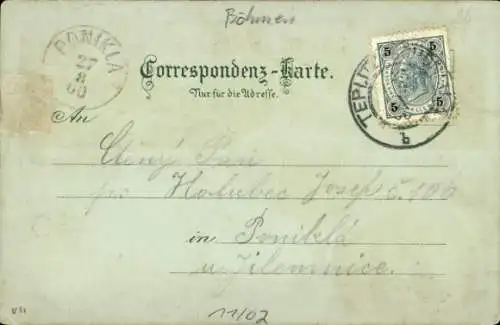 Böhmen
PONIKLÁ
27
8
00
5 5
5 5
TEPLITZ
b
Correspondenz-Karte.
Nur für die Adresse.
An
Ctěný Pan
Holubec Josef č. 100
in Poniklá
u Jilemnice.
11/02